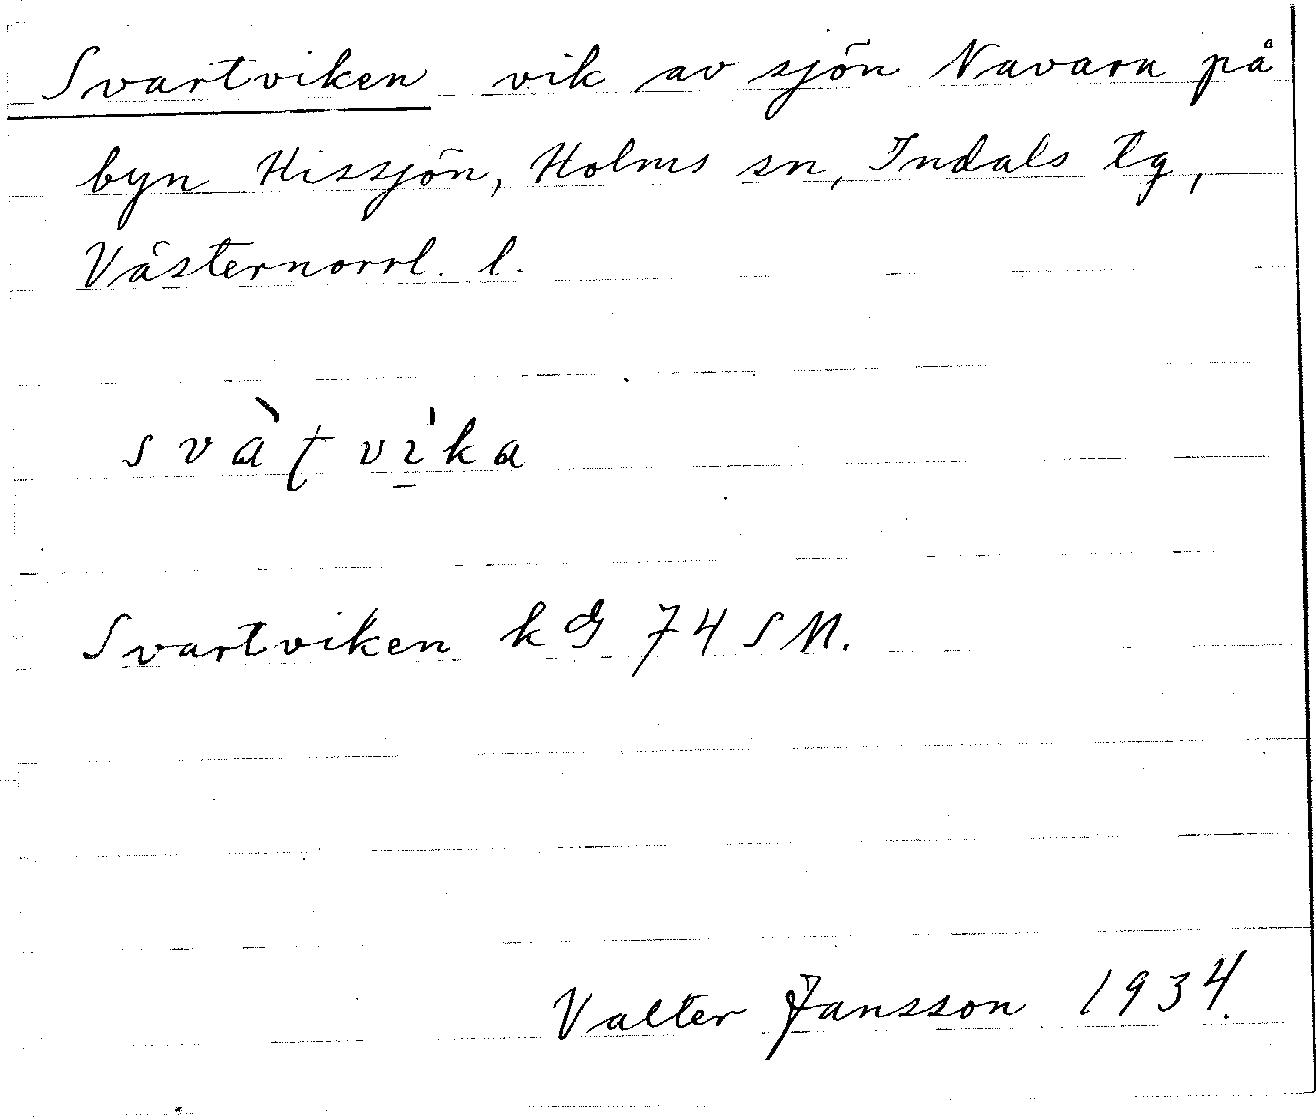 Svartviken vik av sjön Navarn på
byn Hissjön, Holms sn, Indals tg,
Västernorrl. l.
svàʈvi̠ˈka
Svartviken kG 74 SM.
Valter Jansson 1934.